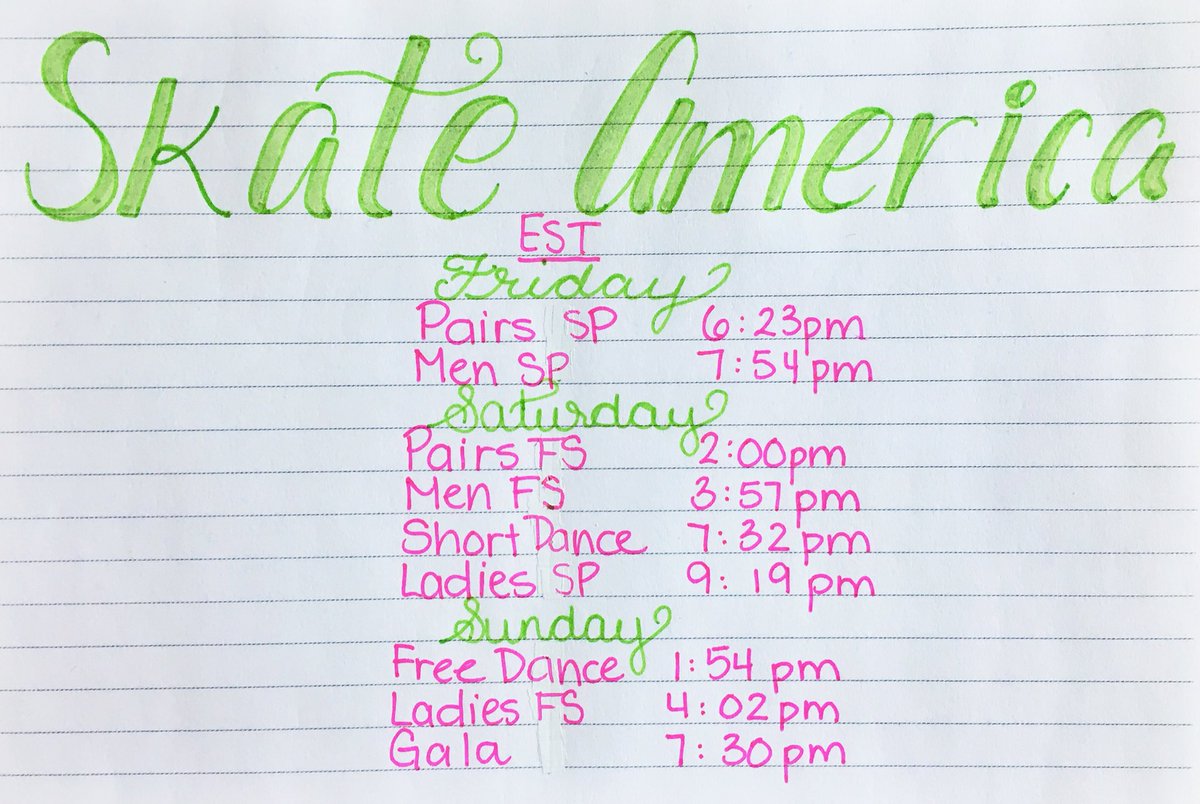 Skate America
EST
Friday
Pairs SP 6:23pm
Men SP 7:54pm
Saturday
Pairs FS 2:00pm
Men FS 3:57pm
Short Dance 7:32pm
Ladies SP 9:19pm
Sunday
Free Dance 1:54pm
Ladies FS 4:02pm
Gala 7:30pm